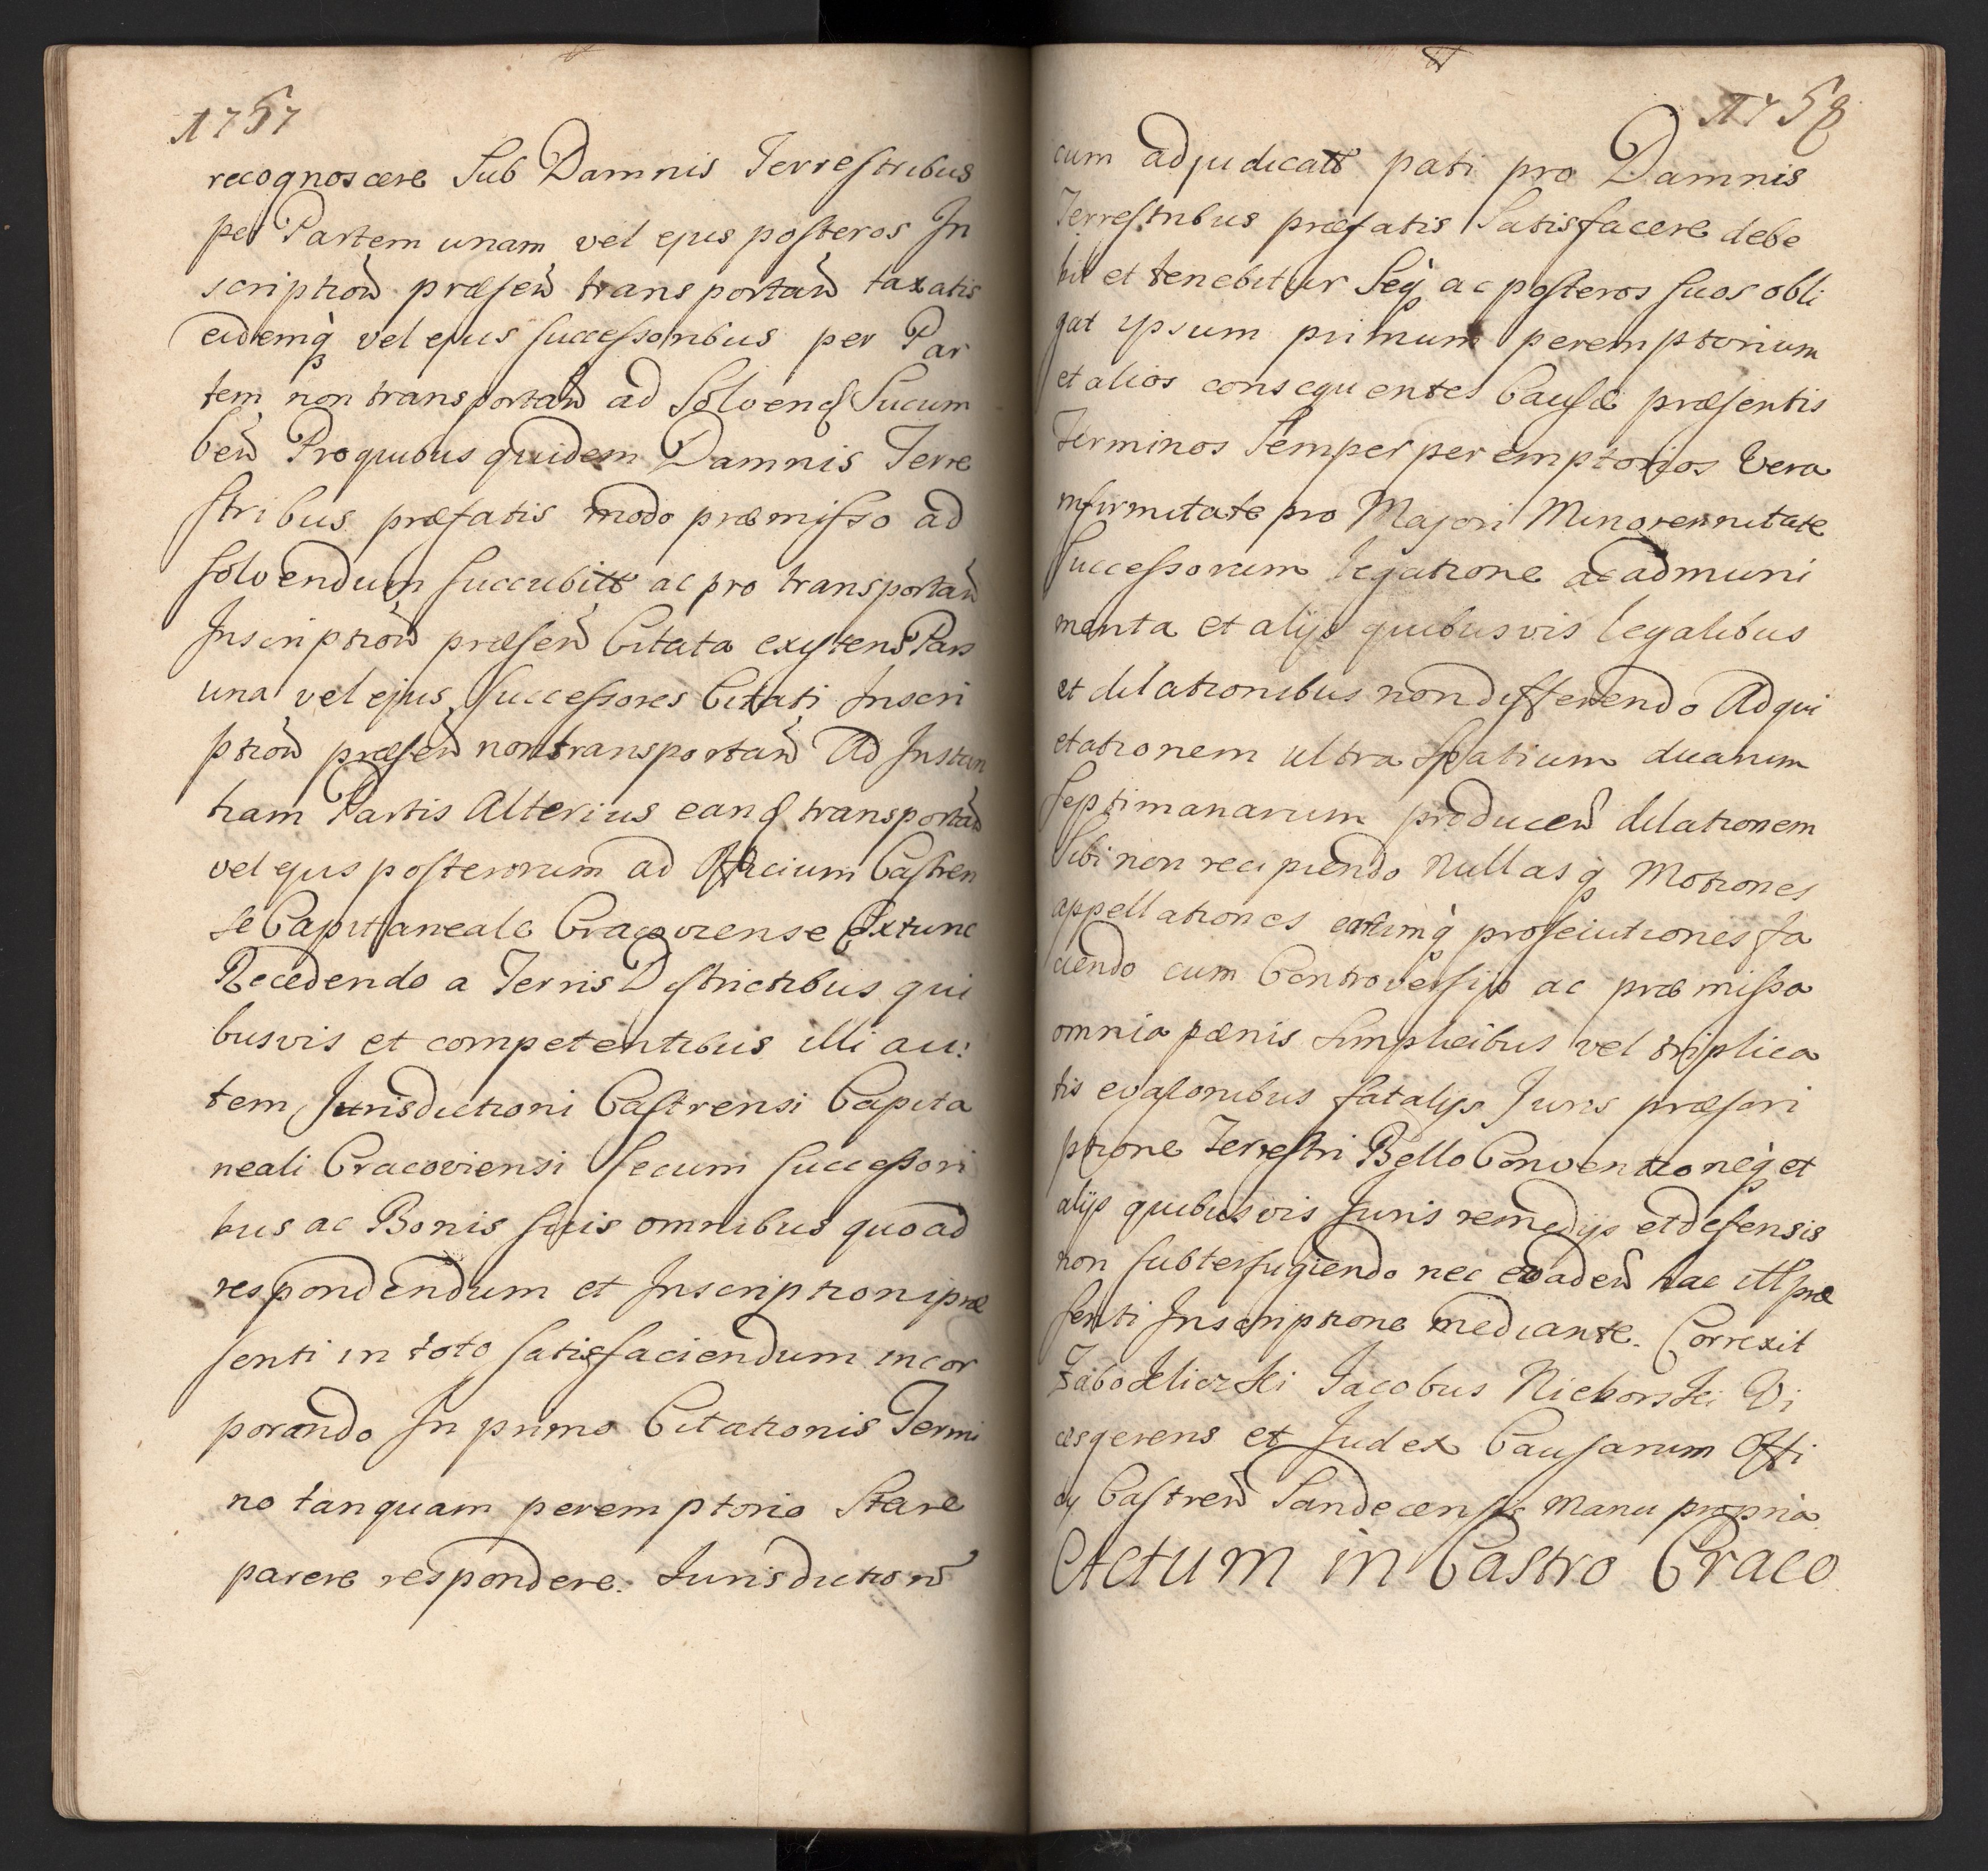 1757
recognoscere Sub Damnis Terrestribus
per Partem unam vel ejus posteros In
scription̄ præsen̄ transportan̄ taxatis
eidemq̀ vel ejus successoribus per Par
tem non transportan̄ ad Solvend Sucum
ben̄ Pro quibus quidem Damnis Terre
stribus præfatis modo præmisso ad
solvendum succubitt ac pro transportan̄
Inscription̄ præsen̄ Citata existens Pars
una vel ejus successores Citati Inscri
ption̄ præsen̄ non transportan̄ Ad Instan
tiam Partis Alterius eand transportan̄
vel ejus posterorum ad Officium Castren
se Capitaneale Cracoviense Extunc
Recedendo a Terris Districtibus qui
busvis et competentibus illi au:
tem Jurisdictioni Castrensi Capita
neali Cracoviensi secum successori
bus ac Bonis suis omnibus quo ad
respondendum et Inscriptioni præ
senti in toto satisfaciendum incor
porando In primo Citationis Termi
no tanquam peremptorio Stare
parere respondere. Jurisdiction̄
1758
cum adjudicatt pati pro Damnis
Terrestribus præfatis Satisfacere debe
bit et tenebitur Seq̀ ac posteros suos obli
gat ipsum primum peremptorium
et alios consequentes Causæ præsentis
Terminos Semper peremptorios Vera
infirmitate pro Majori Minorennitate
Successorum legatione ac admuni
menta et alijs quibusvis legalibus
et dilationibus non differendo Ad qui
etationem ultra Spatium duarum
Septimanarum producen̄ dilationem
Sibi non recipiendo Nullasq̀ Motiones
appellationes earumq̀ prosecutiones fa
ciendo cum Controversijs ac præmissa
omnia pænis simplicibus vel triplica
tis evasionibus fatalijs Juris præscri
ptione Terrestri Bello Conventioneq̀ et
alijs quibusvis Juris remedijs et defensis
non subterfugiendo nec evaden̄ hac præ
senti Inscriptione mediante. Correxit
Jacobus Vi
cesgerens et Judex Causarum Offi
cij Castren̄ Sandecensis Manu propria.
Actum in Castro Craco